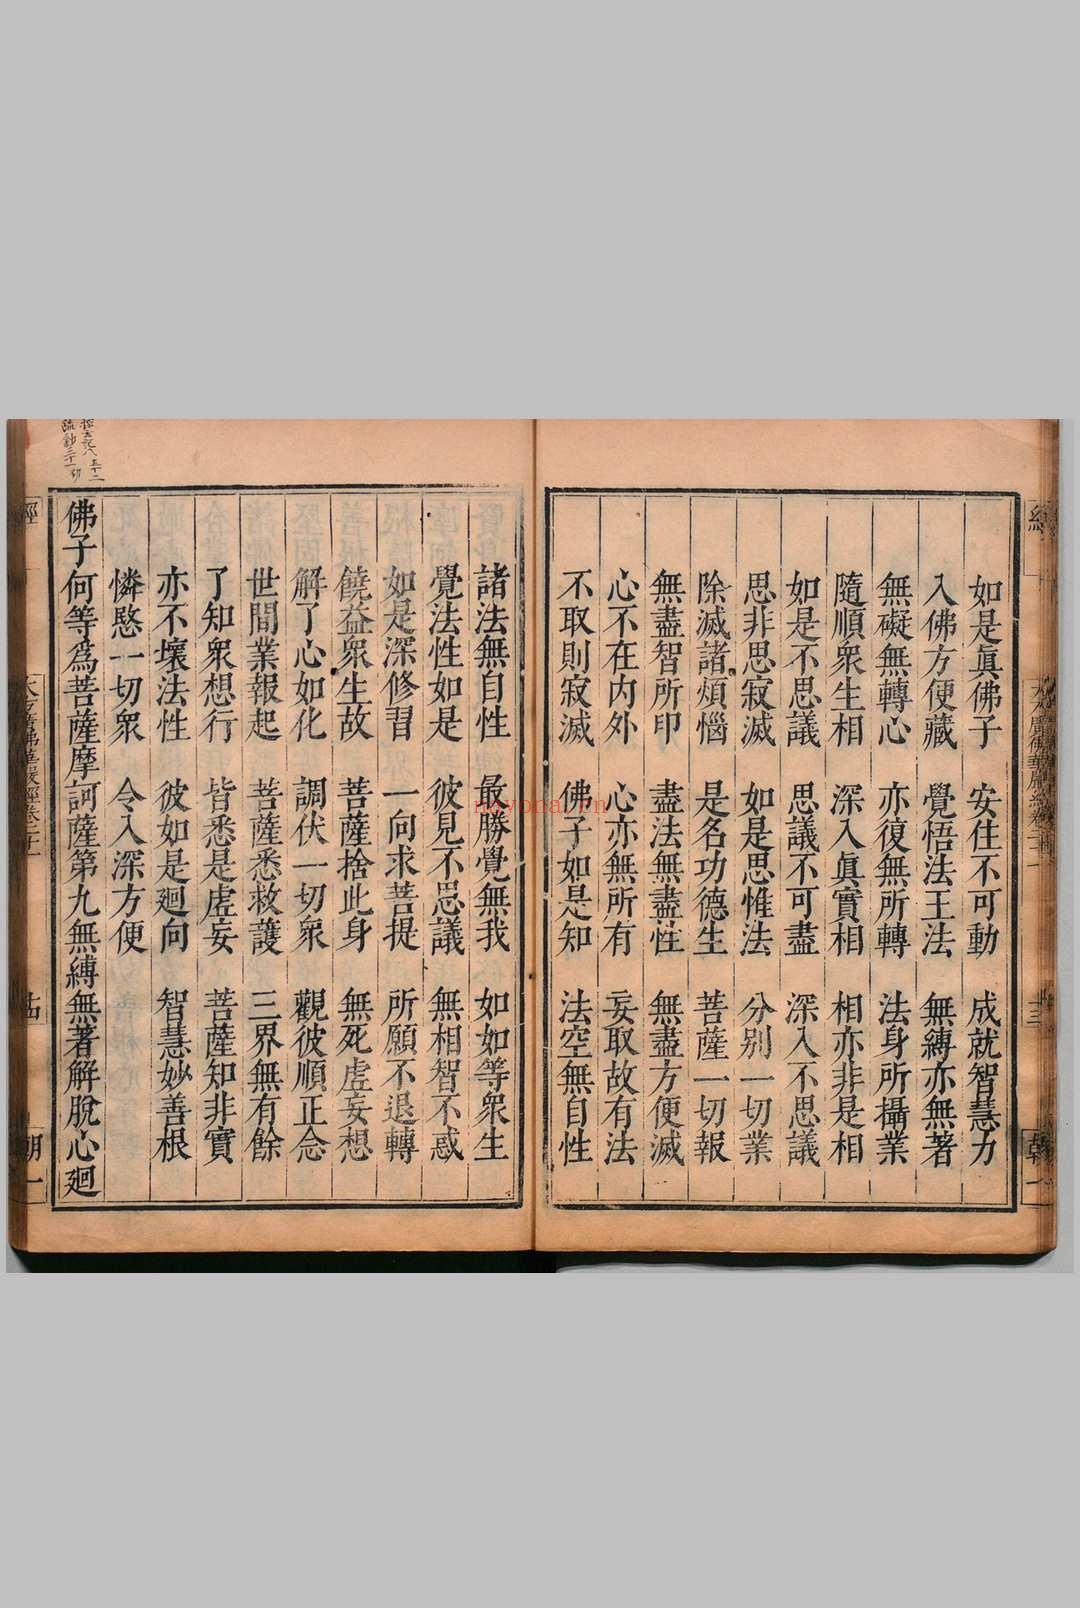 如是眞佛子 安住不可動 成就智慧力
入佛方便藏 覺悟法王法 無縛亦無著
無礙無轉心 亦復無所轉 法身所攝業
隨順衆生相 深入眞實相 相亦非是相
如是不思議 思議不可盡 深入不思議
思非思寂滅 如是思惟法 分别一切業
除滅諸煩惱 是名功德生 菩薩一切報
無盡智所印 盡法無盡性 無盡方便滅
心不在内外 心亦無所有 妄取故有法
不取則寂滅 佛子如是知 法空無自性
諸法無自性 最勝覺無我 如如等衆生
覺法性如是 彼見不思議 無相智不惑
如是深修習 一向求菩提 所願不退轉
饒益衆生故 菩薩捨此身 無死虛妄想
解了心如化 調伏一切衆 觀彼順正念
世間業報起 菩薩悉救護 三界無有餘
了知衆想行 皆悉是虛妄 菩薩知非實
亦不壞法性 彼如是廻向 智慧妙善根
憐愍一切衆 令入深方便
佛子何等爲菩薩摩訶薩第九無縛無著解脫心廻
經 大方廣佛華嚴經卷二十一